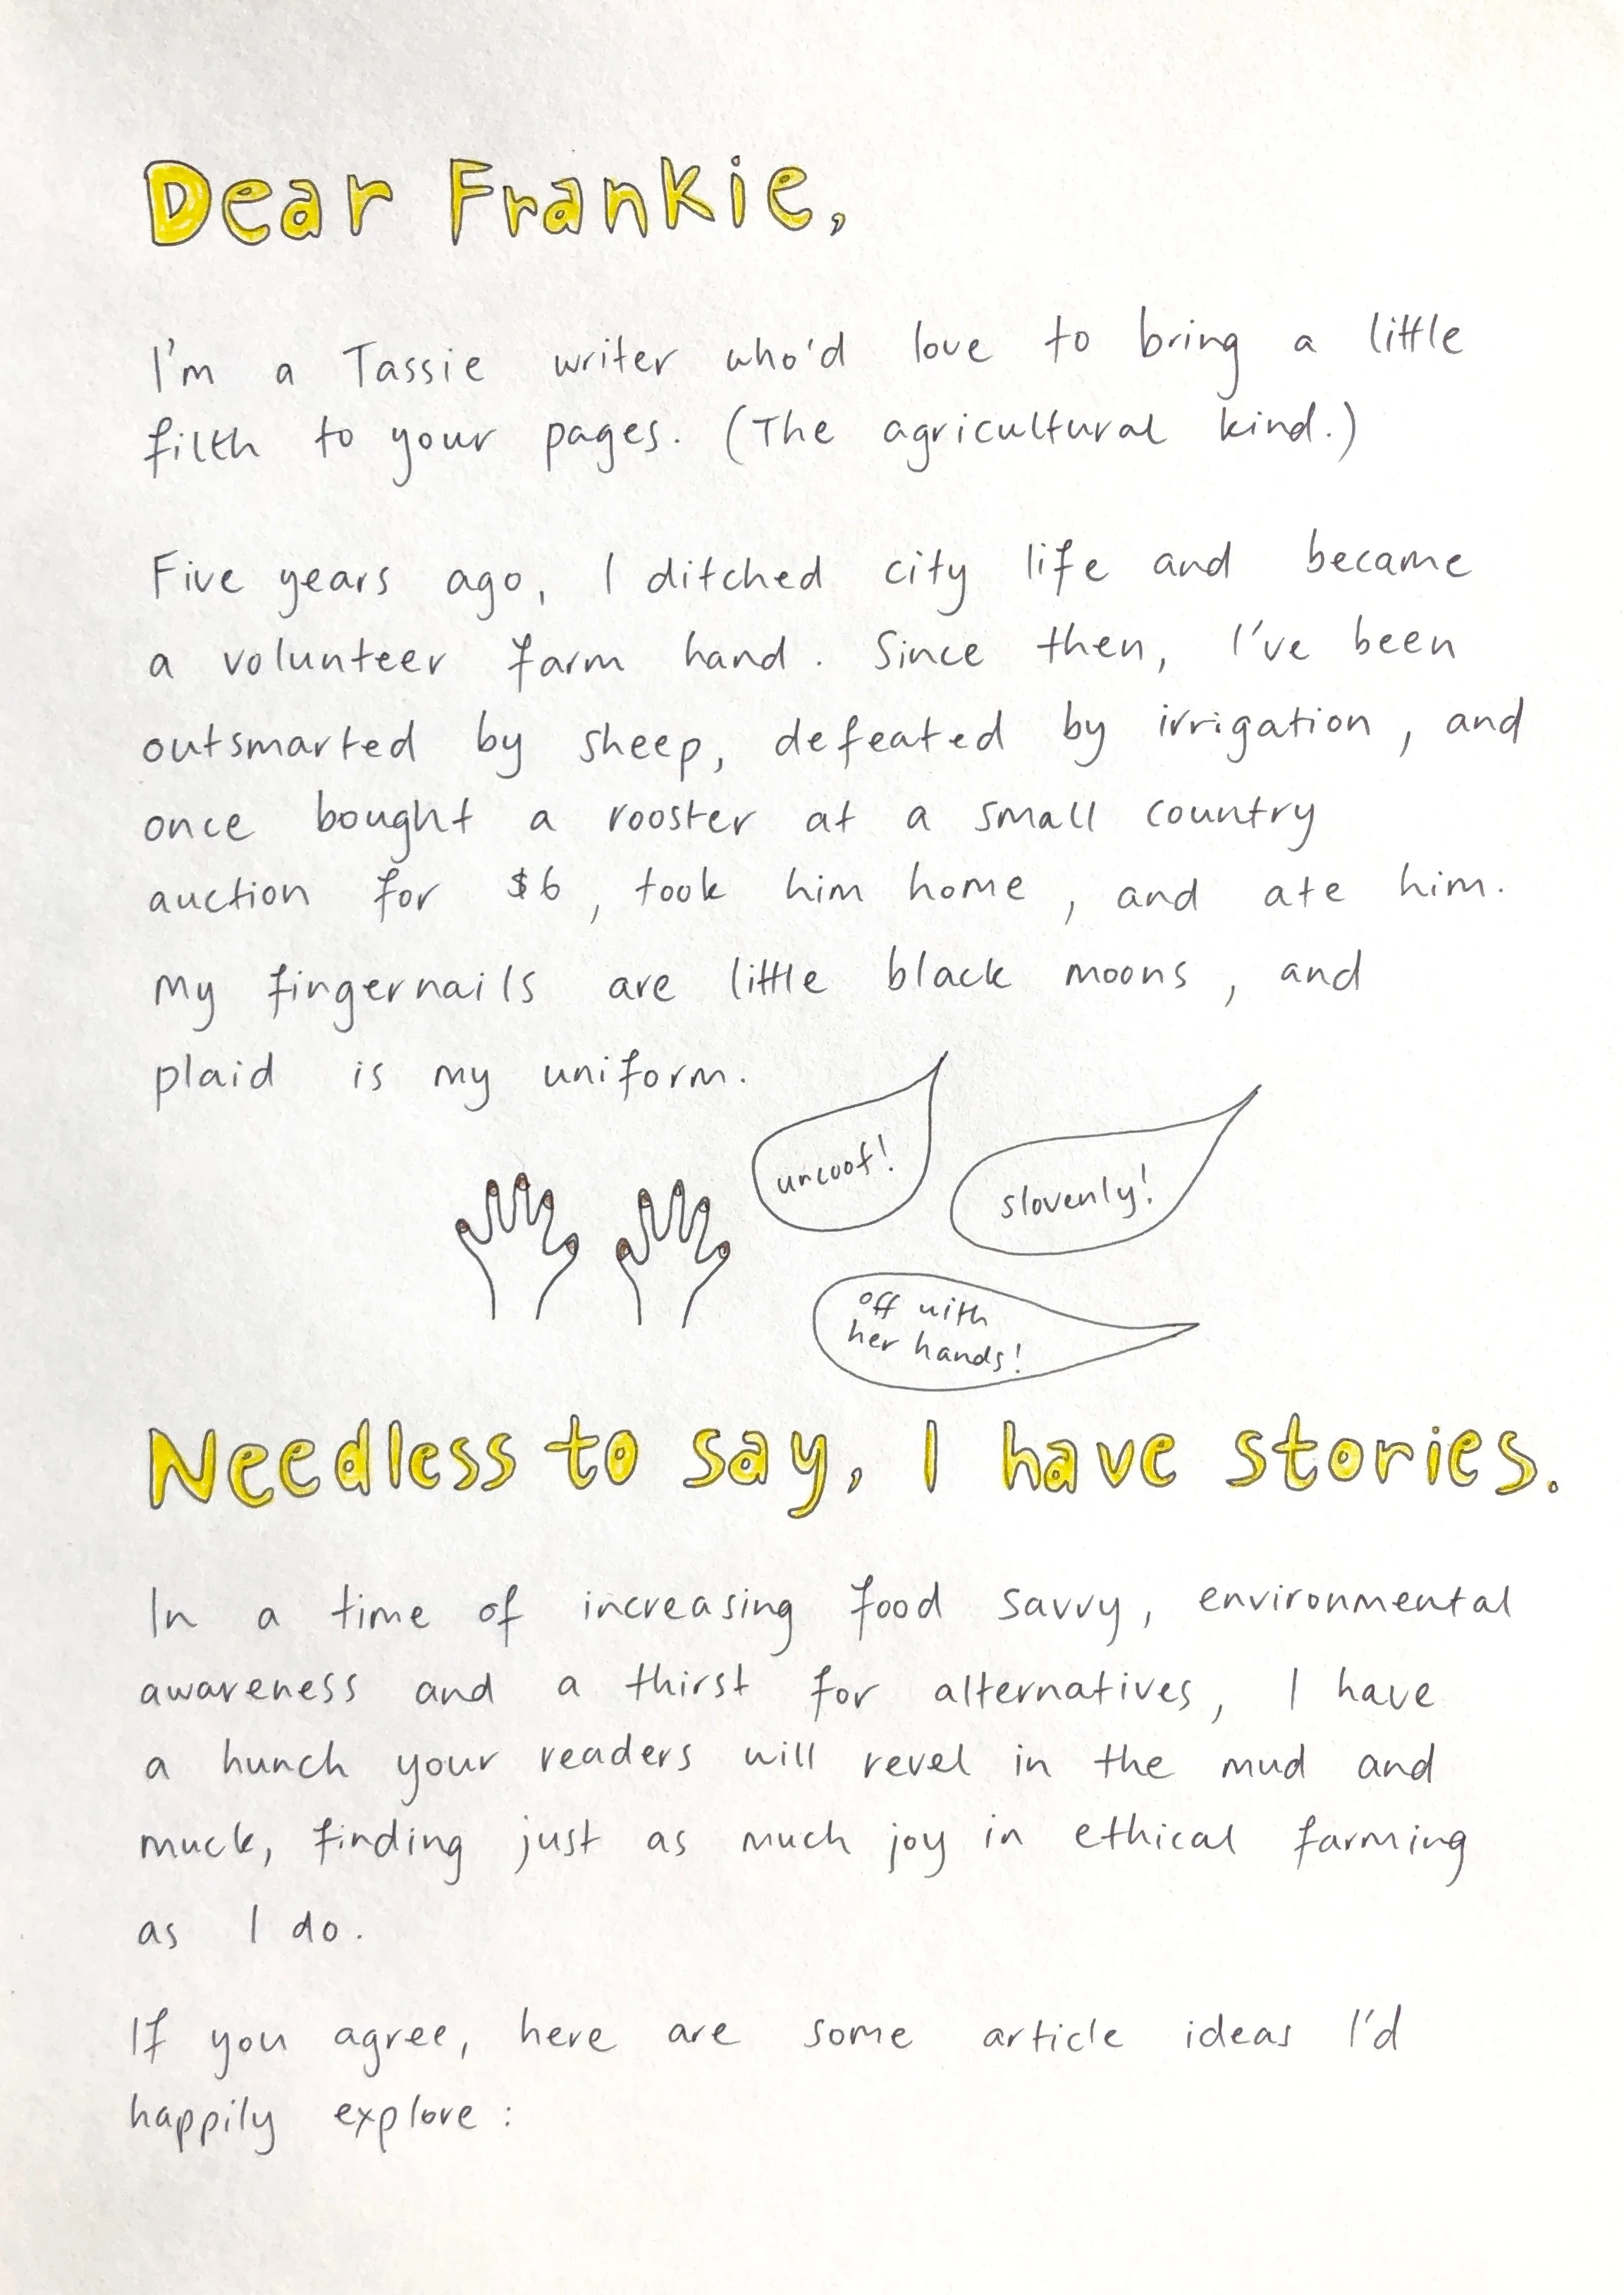 Dear Frankie,
I'm a Tassie writer who'd love to bring a little
filth to your pages. (The agricultural kind.)
Five years ago, I ditched city life and became
a volunteer farm hand. Since then, I've been
outsmarted by sheep, defeated by irrigation, and
once bought a rooster at a small country
auction for $6, took him home, and ate him.
My fingernails are little black moons, and
plaid is my uniform.
uncoof!
slovenly!
off with
her hands!
Needless to say, I have stories.
In a time of increasing food savvy, environmental
awareness and a thirst for alternatives, I have
a hunch your readers will revel in the mud and
muck, finding just as much joy in ethical farming
as I do.
If you agree, here are some article ideas I'd
happily explore: